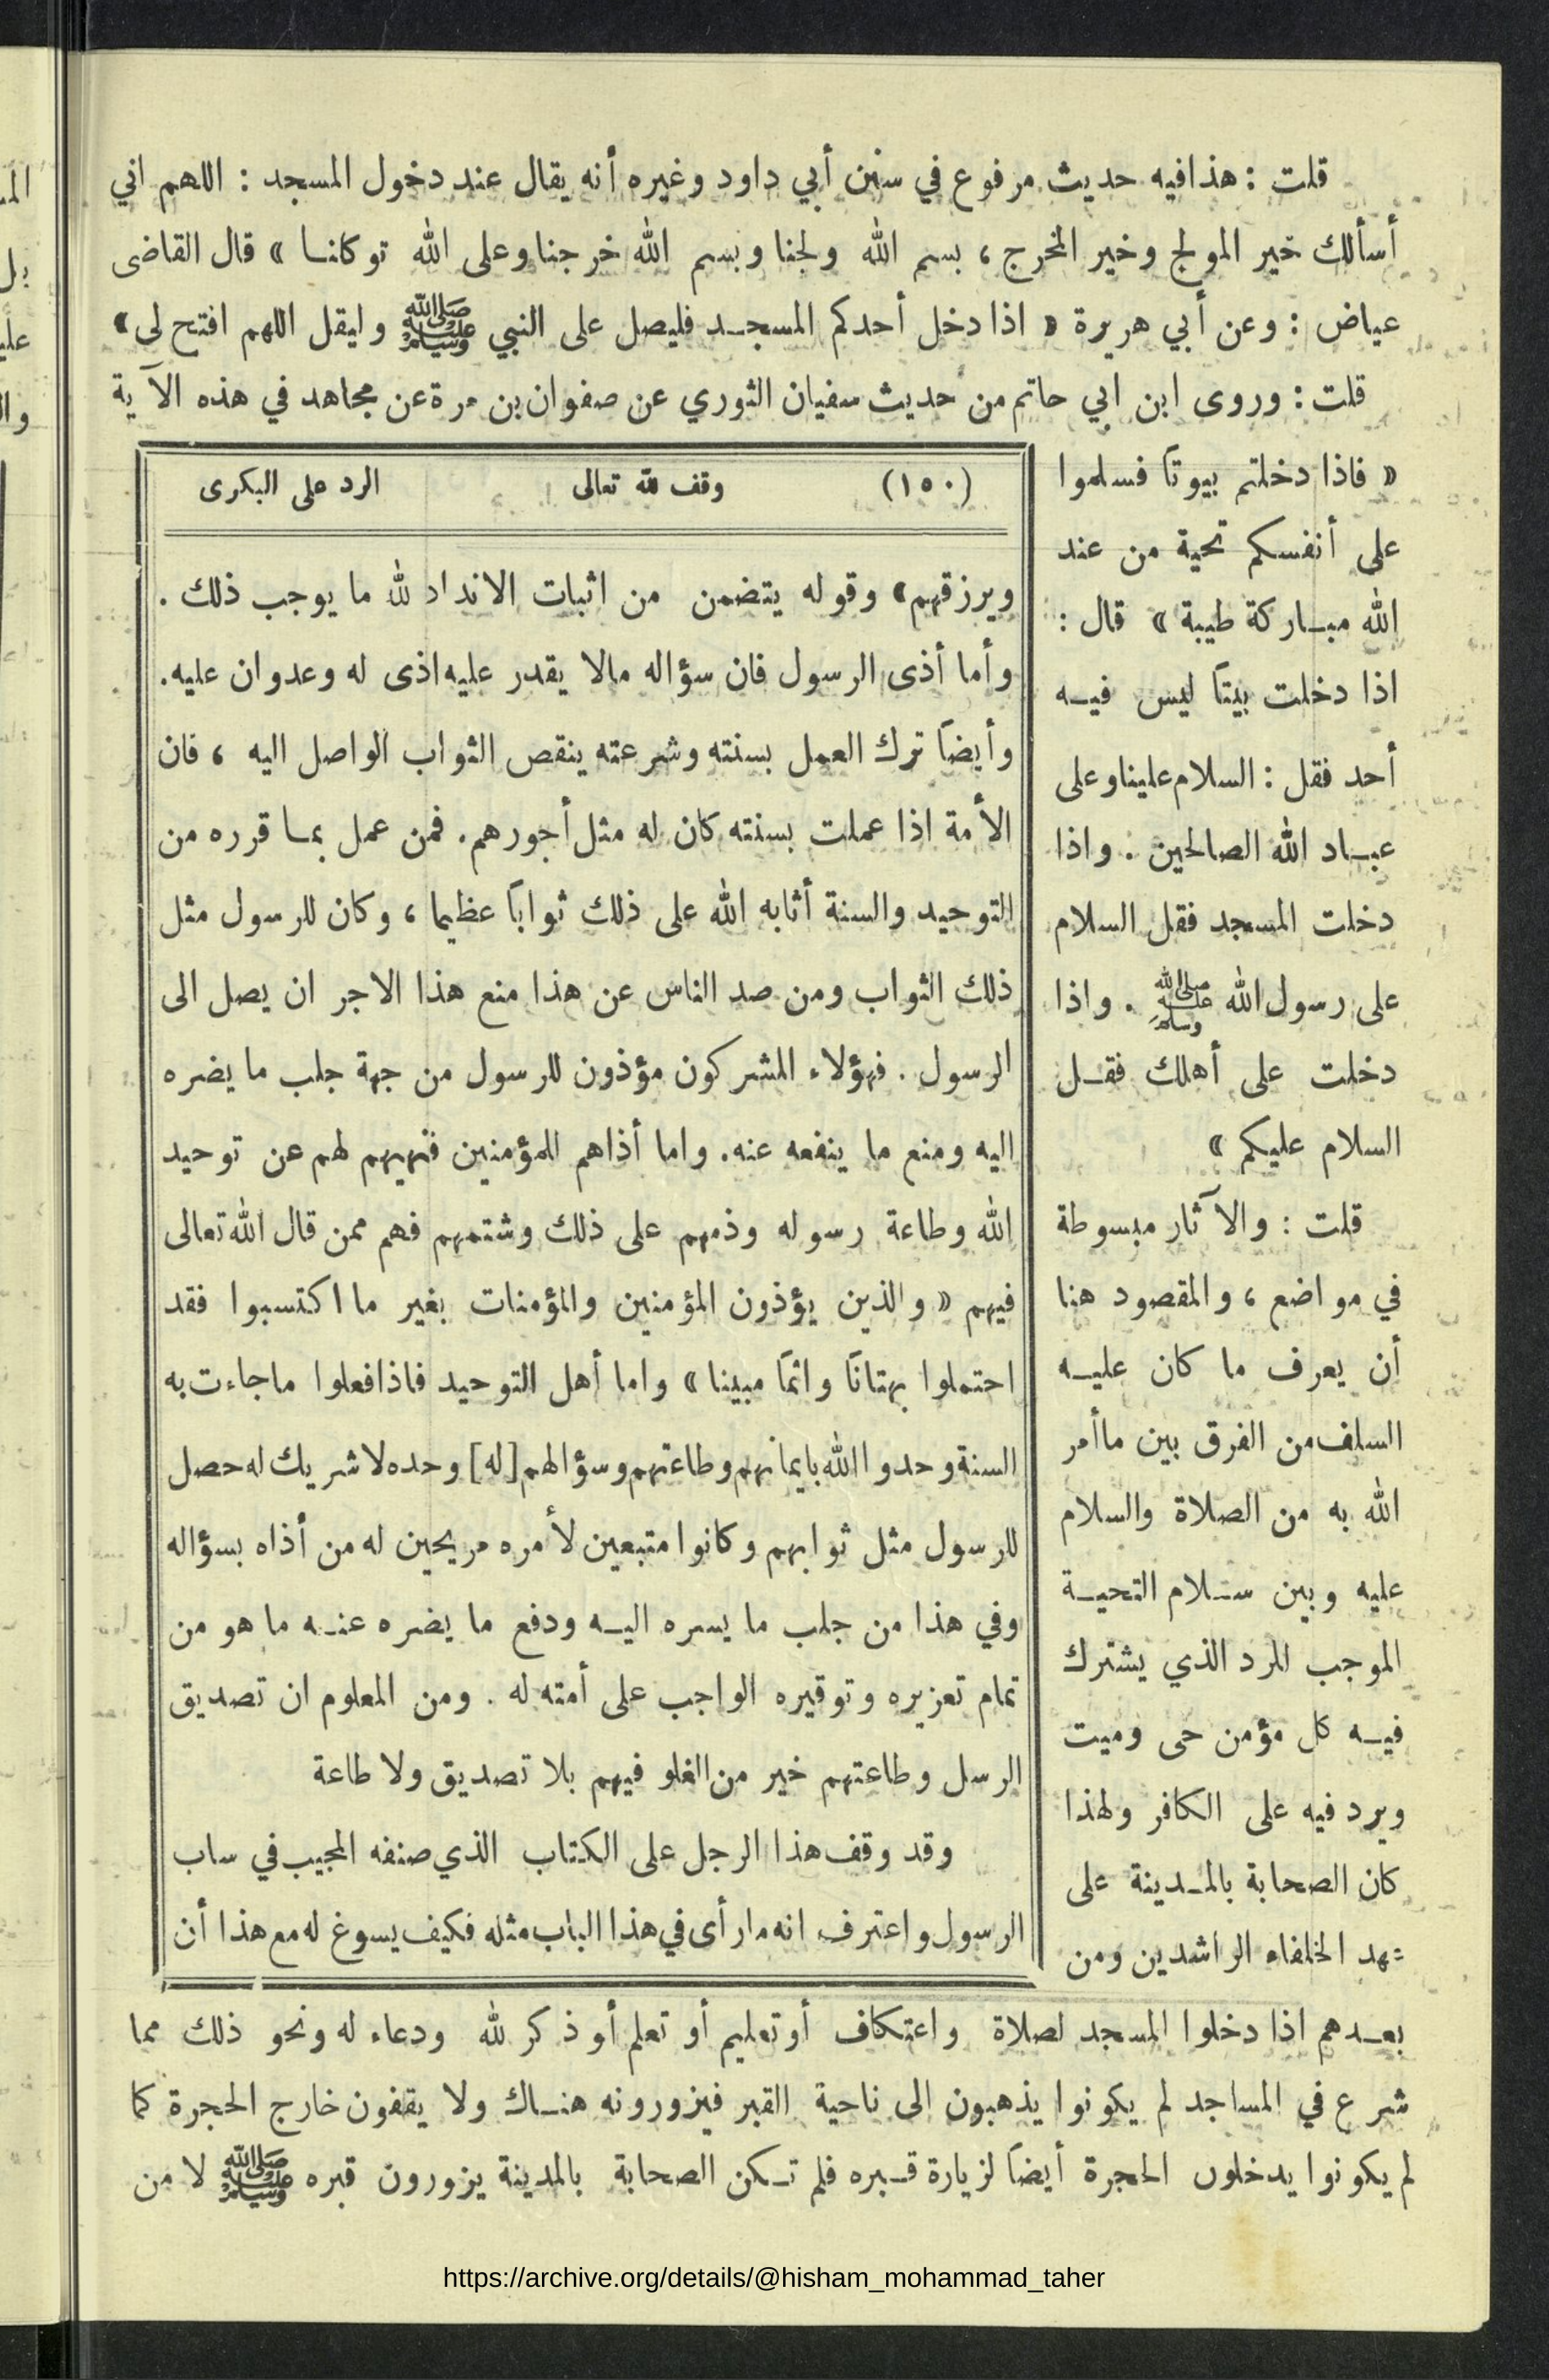 قلت : هذا فيه حديث مرفوع في سنن أبي داود وغيره أنه يقال عند دخول المسجد : اللهم اني
أسألك خير المولج وخير المخرج ، بسم الله ولجنا وبسم الله خرجنا وعلى الله توكانا » قال القاضى
عياض : وعن أبي هريرة « اذا دخل أحدكم المسجد فليصل على النبي ﷺ وليقل اللهم افتح لى »
قلت : وروى ابن ابي حاتم من حديث سفيان الثوري عن صفوان بن مرة عن مجاهد في هذه الآية
« فاذا دخلتم بيوتاً فسلموا
على أنفسكم تحية من عند
الله مباركة طيبة » قال :
اذا دخلت بيتاً ليس فيه
أحد فقل : السلام علينا وعلى
عباد الله الصالحين . واذا
دخلت المسجد فقل السلام
على رسول الله ﷺ . واذا
دخلت على أهلك فقل
السلام عليكم »
قلت : والآثار مبسوطة
في مواضع ، والمقصود هنا
أن يعرف ما كان عليه
السلف من الفرق بين ما أمر
الله به من الصلاة والسلام
عليه وبين سلام التحية
الموجب للرد الذي يشترك
فيه كل مؤمن حى وميت
ويرد فيه على الكافر ولهذا
كان الصحابة بالمدينة على
عهد الخلفاء الراشدين ومن
بعدهم اذا دخلوا المسجد لصلاة واعتكاف أو تعليم أو تعلم أو ذكر لله ودعاء له ونحو ذلك مما
شرع في المساجد لم يكونوا يذهبون الى ناحية القبر فيزورونه هناك ولا يقفون خارج الحجرة كما
لم يكونوا يدخلون الحجرة أيضاً لزيارة قبره فلم تكن الصحابة بالمدينة يزورون قبره ﷺ لا من
(١٥٠) وقف لله تعالى الرد على البكرى
ويرزقهم » وقوله يتضمن من اثبات الانداد لله ما يوجب ذلك .
وأما أذى الرسول فان سؤاله مالا يقدر عليه اذى له وعدوان عليه.
وأيضاً ترك العمل بسنته وشرعته ينقص الثواب الواصل اليه ، فان
الأمة اذا عملت بسنته كان له مثل أجورهم. فمن عمل بما قرره من
التوحيد والسنة أثابه الله على ذلك ثواباً عظيما ، وكان للرسول مثل
ذلك الثواب ومن صد الناس عن هذا منع هذا الاجر ان يصل الى
الرسول . فهؤلاء المشركون مؤذون للرسول من جهة جلب ما يضره
اليه ومنع ما ينفعه عنه. واما أذاهم للمؤمنين فنهيهم لهم عن توحيد
الله وطاعة رسوله وذمهم على ذلك وشتمهم فهم ممن قال الله تعالى
فيهم « والذين يؤذون المؤمنين والمؤمنات بغير ما اكتسبوا فقد
احتملوا بهتاناً واثماً مبينا » واما أهل التوحيد فاذا فعلوا ما جاءت به
السنة وحدوا الله بايمانهم وطاعتهم وسؤالهم [له] وحده لا شريك له حصل
للرسول مثل ثوابهم وكانوا متبعين لأمره مريحين له من أذاه بسؤاله
وفي هذا من جلب ما يسره اليه ودفع ما يضره عنه ما هو من
تمام تعزيره وتوقيره الواجب على أمته له . ومن المعلوم ان تصديق
الرسل وطاعتهم خير من الغلو فيهم بلا تصديق ولا طاعة
وقد وقف هذا الرجل على الكتاب الذي صنفه المجيب في ساب
الرسول واعترف انه ما رأى في هذا الباب مثله فكيف يسوغ له مع هذا أن
https://archive.org/details/@hisham_mohammad_taher